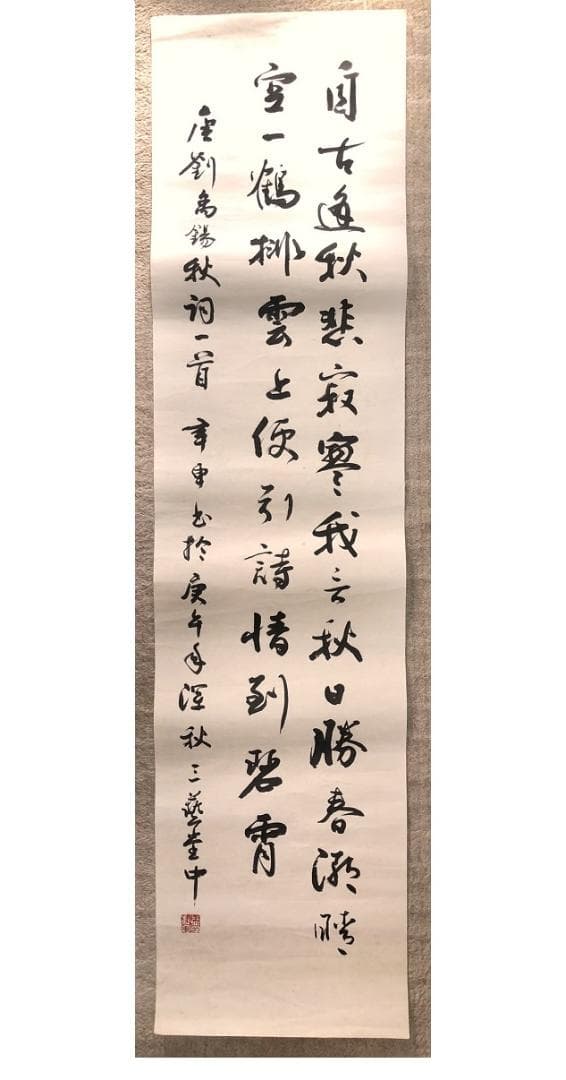 自古逢秋悲寂寥我言秋日勝春潮晴
空一鶴排雲上便引詩情到碧霄
唐劉禹錫秋詞一首 書於庚午年深秋三藝堂中